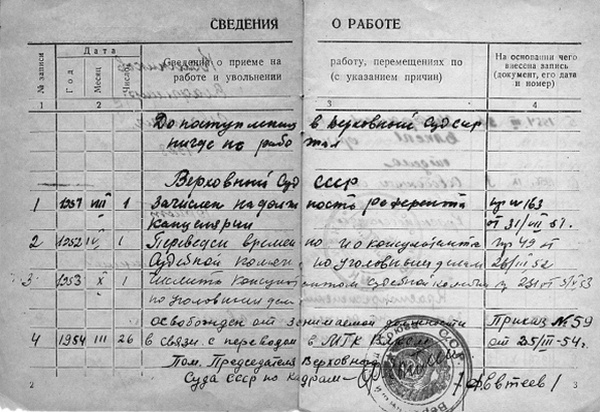 СВЕДЕНИЯ О РАБОТЕ
№ записи
Дата
Год
Месяц
Число
Сведения о приеме на
работе и увольнении
работу, перемещениях по
(с указанием причин)
На основании чего
внесена запись
(документ, его дата
и номер)
1 2 3 4
До поступления в Верховный Суд СССР
нигде не работал
Верховный Суд СССР
1 1951 VIII 1 Зачислен на должность референта пр №163
канцелярии от 31/VII 51.
2 1952 IV 1 Переведен временно и о консультанта пр 49 от
Судебной по уголовным делам 26/III 52
3 1953 X 1 Числить консультантом Судебной коллегии пр 231 от
по уголовным делам
освобожден от занимаемой должности Приказ №59
4 1954 III 26 в связи с переводом в МГК ВЛКСМ от 25/III-54г.
Пом. Председателя Верховного
Суда СССР по Кадрам- /Евтеев/
2 3